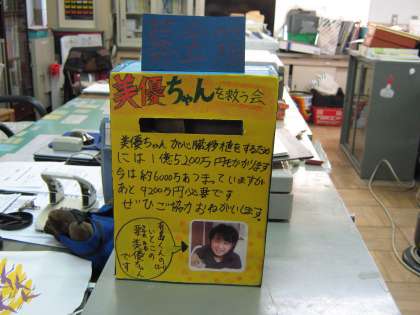 募金箱
美優ちゃんを救う会
美優ちゃんが心臓移植をするため
には1億5200万円もかかります
今は約6000万あつまっていますが
あと9200万円必要です
ぜひご協力おねがいします。
美優ちゃん
です